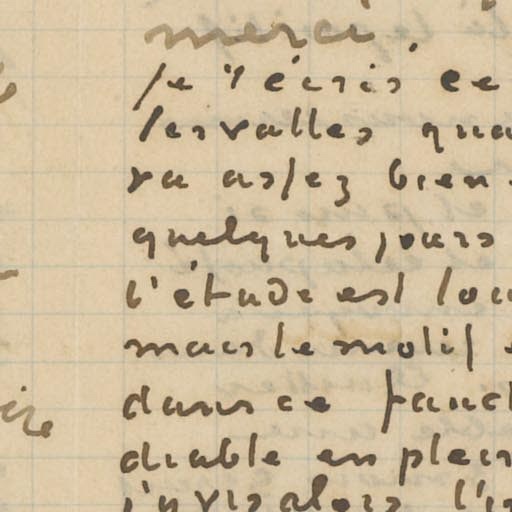 merci,
je t'écris ce
les valles qua
va assez bien
quelques jours
l'étude est lou
mais le motif
dans ce fauct
diable en plein
j'y vis alors l'i